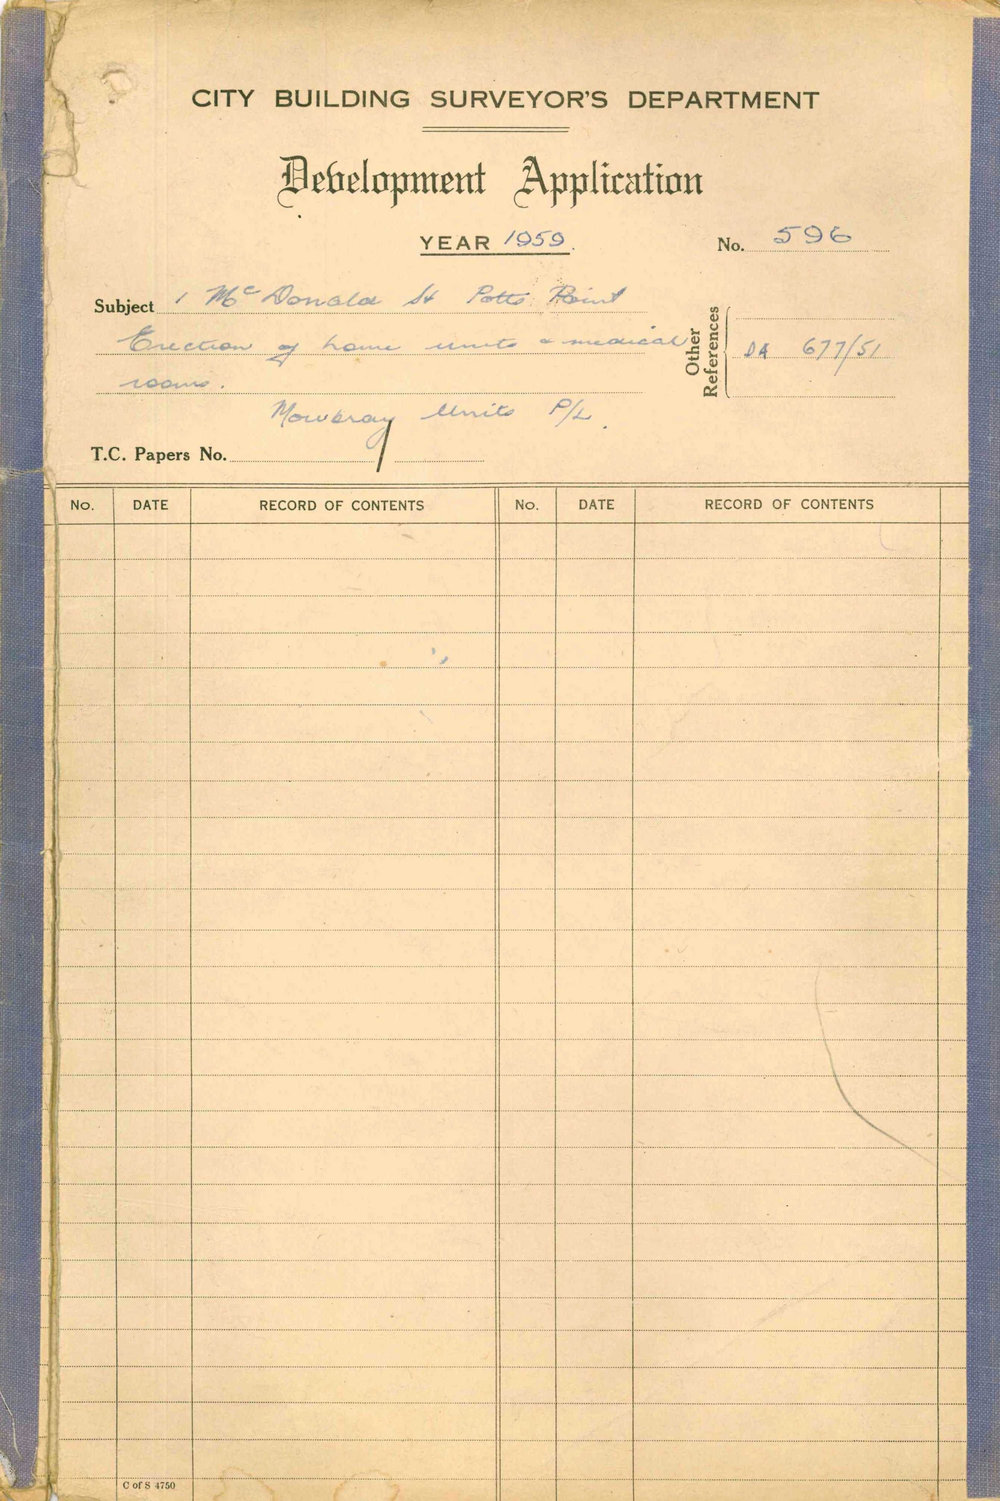 CITY BUILDING SURVEYOR'S DEPARTMENT
Development Application
YEAR 1959.
No. 596
Subject 1 McDonald St Potts Point
Erection of home units & medical
rooms.
Mowbray Units P/L.
Other References
DA 677/51
T.C. Papers No.
No. DATE RECORD OF CONTENTS No. DATE RECORD OF CONTENTS
C of S 4750